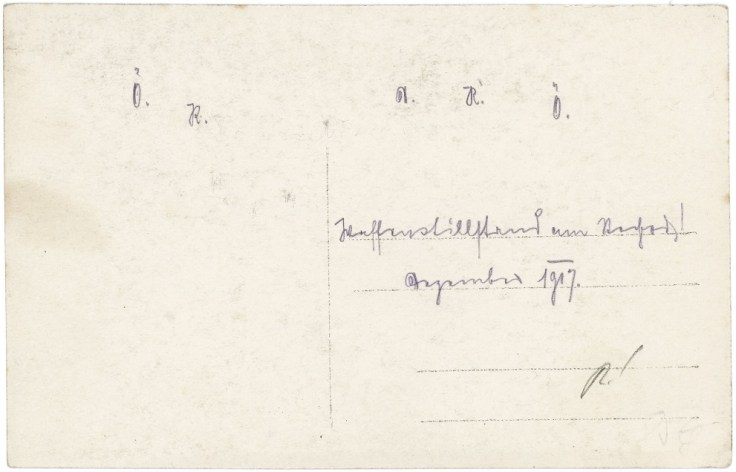 Ö. R. D. R. Ö.
Waffenstillstand am Stochod!
Dezember 1917.
R!